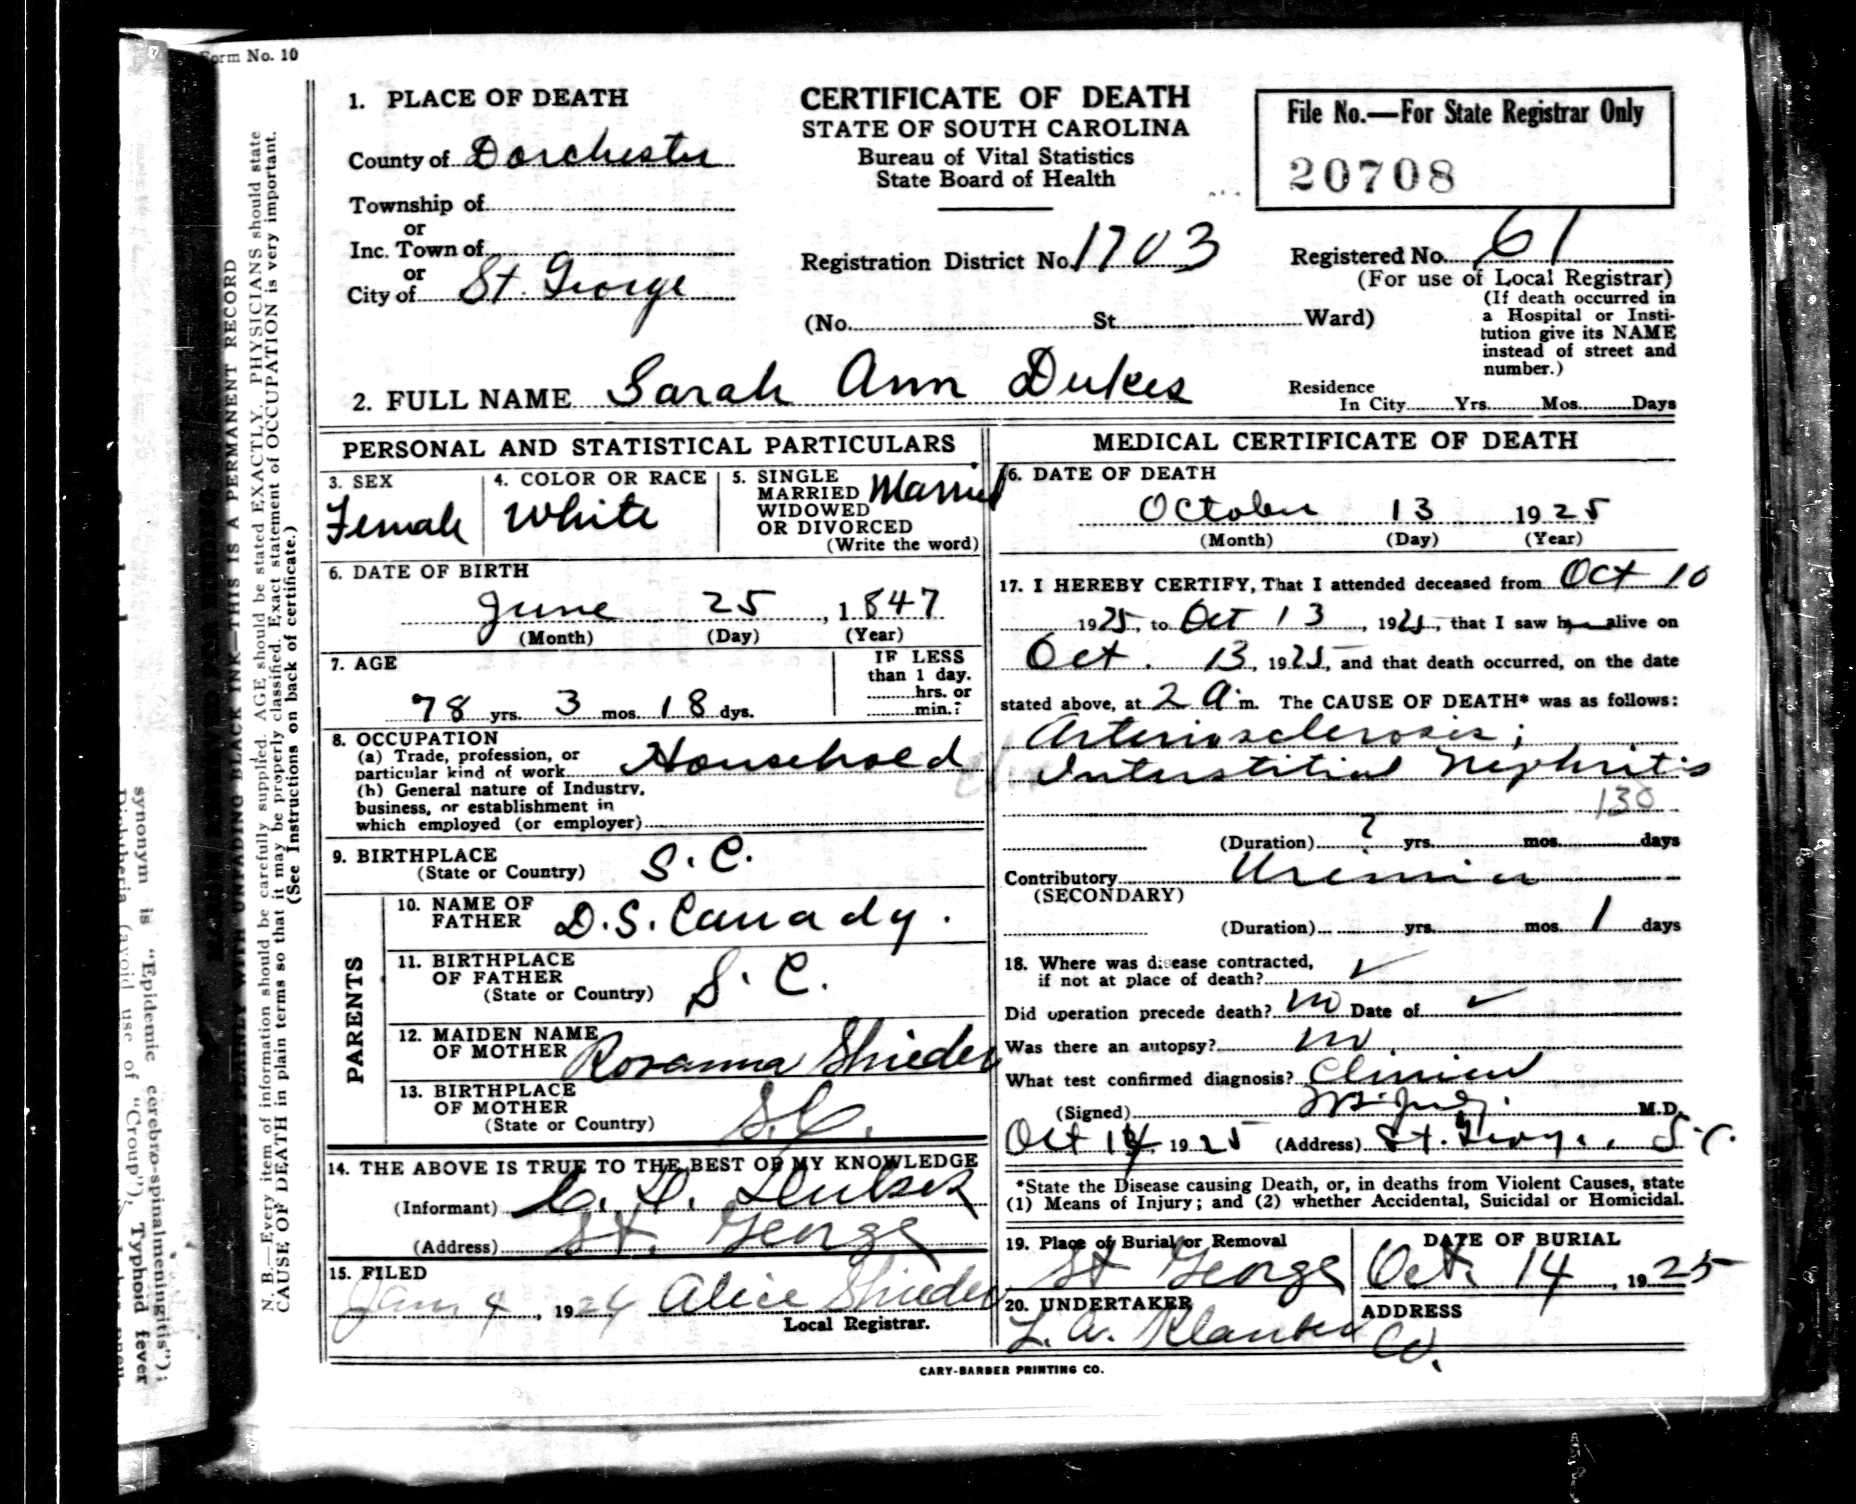 Form No. 10
1. PLACE OF DEATH
County of Dorchester
Township of
or
Inc. Town of
or
City of St. George
CERTIFICATE OF DEATH
STATE OF SOUTH CAROLINA
Bureau of Vital Statistics
State Board of Health
Registration District No. 1703
(No. St. Ward)
File No.—For State Registrar Only
20708
Registered No. 61
(For use of Local Registrar)
(If death occurred in
a Hospital or Insti-
tution give its NAME
instead of street and
number.)
2. FULL NAME Sarah Ann Dukes
Residence
In City Yrs. Mos. Days
PERSONAL AND STATISTICAL PARTICULARS
3. SEX
Female
4. COLOR OR RACE
White
5. SINGLE
MARRIED Married
WIDOWED
OR DIVORCED
(Write the word)
6. DATE OF BIRTH
June 25, 1847
(Month) (Day) (Year)
7. AGE
78 yrs. 3 mos. 18 dys.
IF LESS
than 1 day.
hrs. or
min.?
8. OCCUPATION
(a) Trade, profession, or
particular kind of work Household
(b) General nature of Industry,
business, or establishment in
which employed (or employer)
9. BIRTHPLACE
(State or Country) S. C.
PARENTS
10. NAME OF
FATHER D. S. Canady.
11. BIRTHPLACE
OF FATHER
(State or Country) S. C.
12. MAIDEN NAME
OF MOTHER Rosanna Shieder
13. BIRTHPLACE
OF MOTHER
(State or Country) S.C.
14. THE ABOVE IS TRUE TO THE BEST OF MY KNOWLEDGE
(Informant) C. D. Dukes
(Address) St. George
15. FILED
Jan 4, 1926 Alice Shieder
Local Registrar.
MEDICAL CERTIFICATE OF DEATH
16. DATE OF DEATH
October 13 1925
(Month) (Day) (Year)
17. I HEREBY CERTIFY, That I attended deceased from Oct 10
1925, to Oct 13, 1925, that I saw h alive on
Oct. 13, 1925, and that death occurred, on the date
stated above, at 2 a. m. The CAUSE OF DEATH* was as follows:
Arteriosclerosis;
Interstitial Nephritis
130
(Duration) ? yrs. mos. days
Contributory Uremia
(SECONDARY)
(Duration) yrs. mos. 1 days
18. Where was disease contracted,
if not at place of death? ✓
Did operation precede death? no Date of ✓
Was there an autopsy? no
What test confirmed diagnosis? Clinical
(Signed) M.D.
Oct 14 1925 (Address) St. George, S.C.
*State the Disease causing Death, or, in deaths from Violent Causes, state
(1) Means of Injury; and (2) whether Accidental, Suicidal or Homicidal.
19. Place of Burial or Removal
St George
DATE OF BURIAL
Oct. 14, 1925
20. UNDERTAKER
L. A. Klauber Co.
ADDRESS
CARY-BARBER PRINTING CO.
WRITE PLAINLY WITH UNFADING BLACK INK—THIS IS A PERMANENT RECORD
N. B.—Every item of information should be carefully supplied. AGE should be stated EXACTLY. PHYSICIANS should state
CAUSE OF DEATH in plain terms so that it may be properly classified. Exact statement of OCCUPATION is very important.
(See Instructions on back of certificate.)
synonym is "Epidemic cerebro-spinalmeningitis");
Diphtheria (avoid use of "Croup"); Typhoid fever